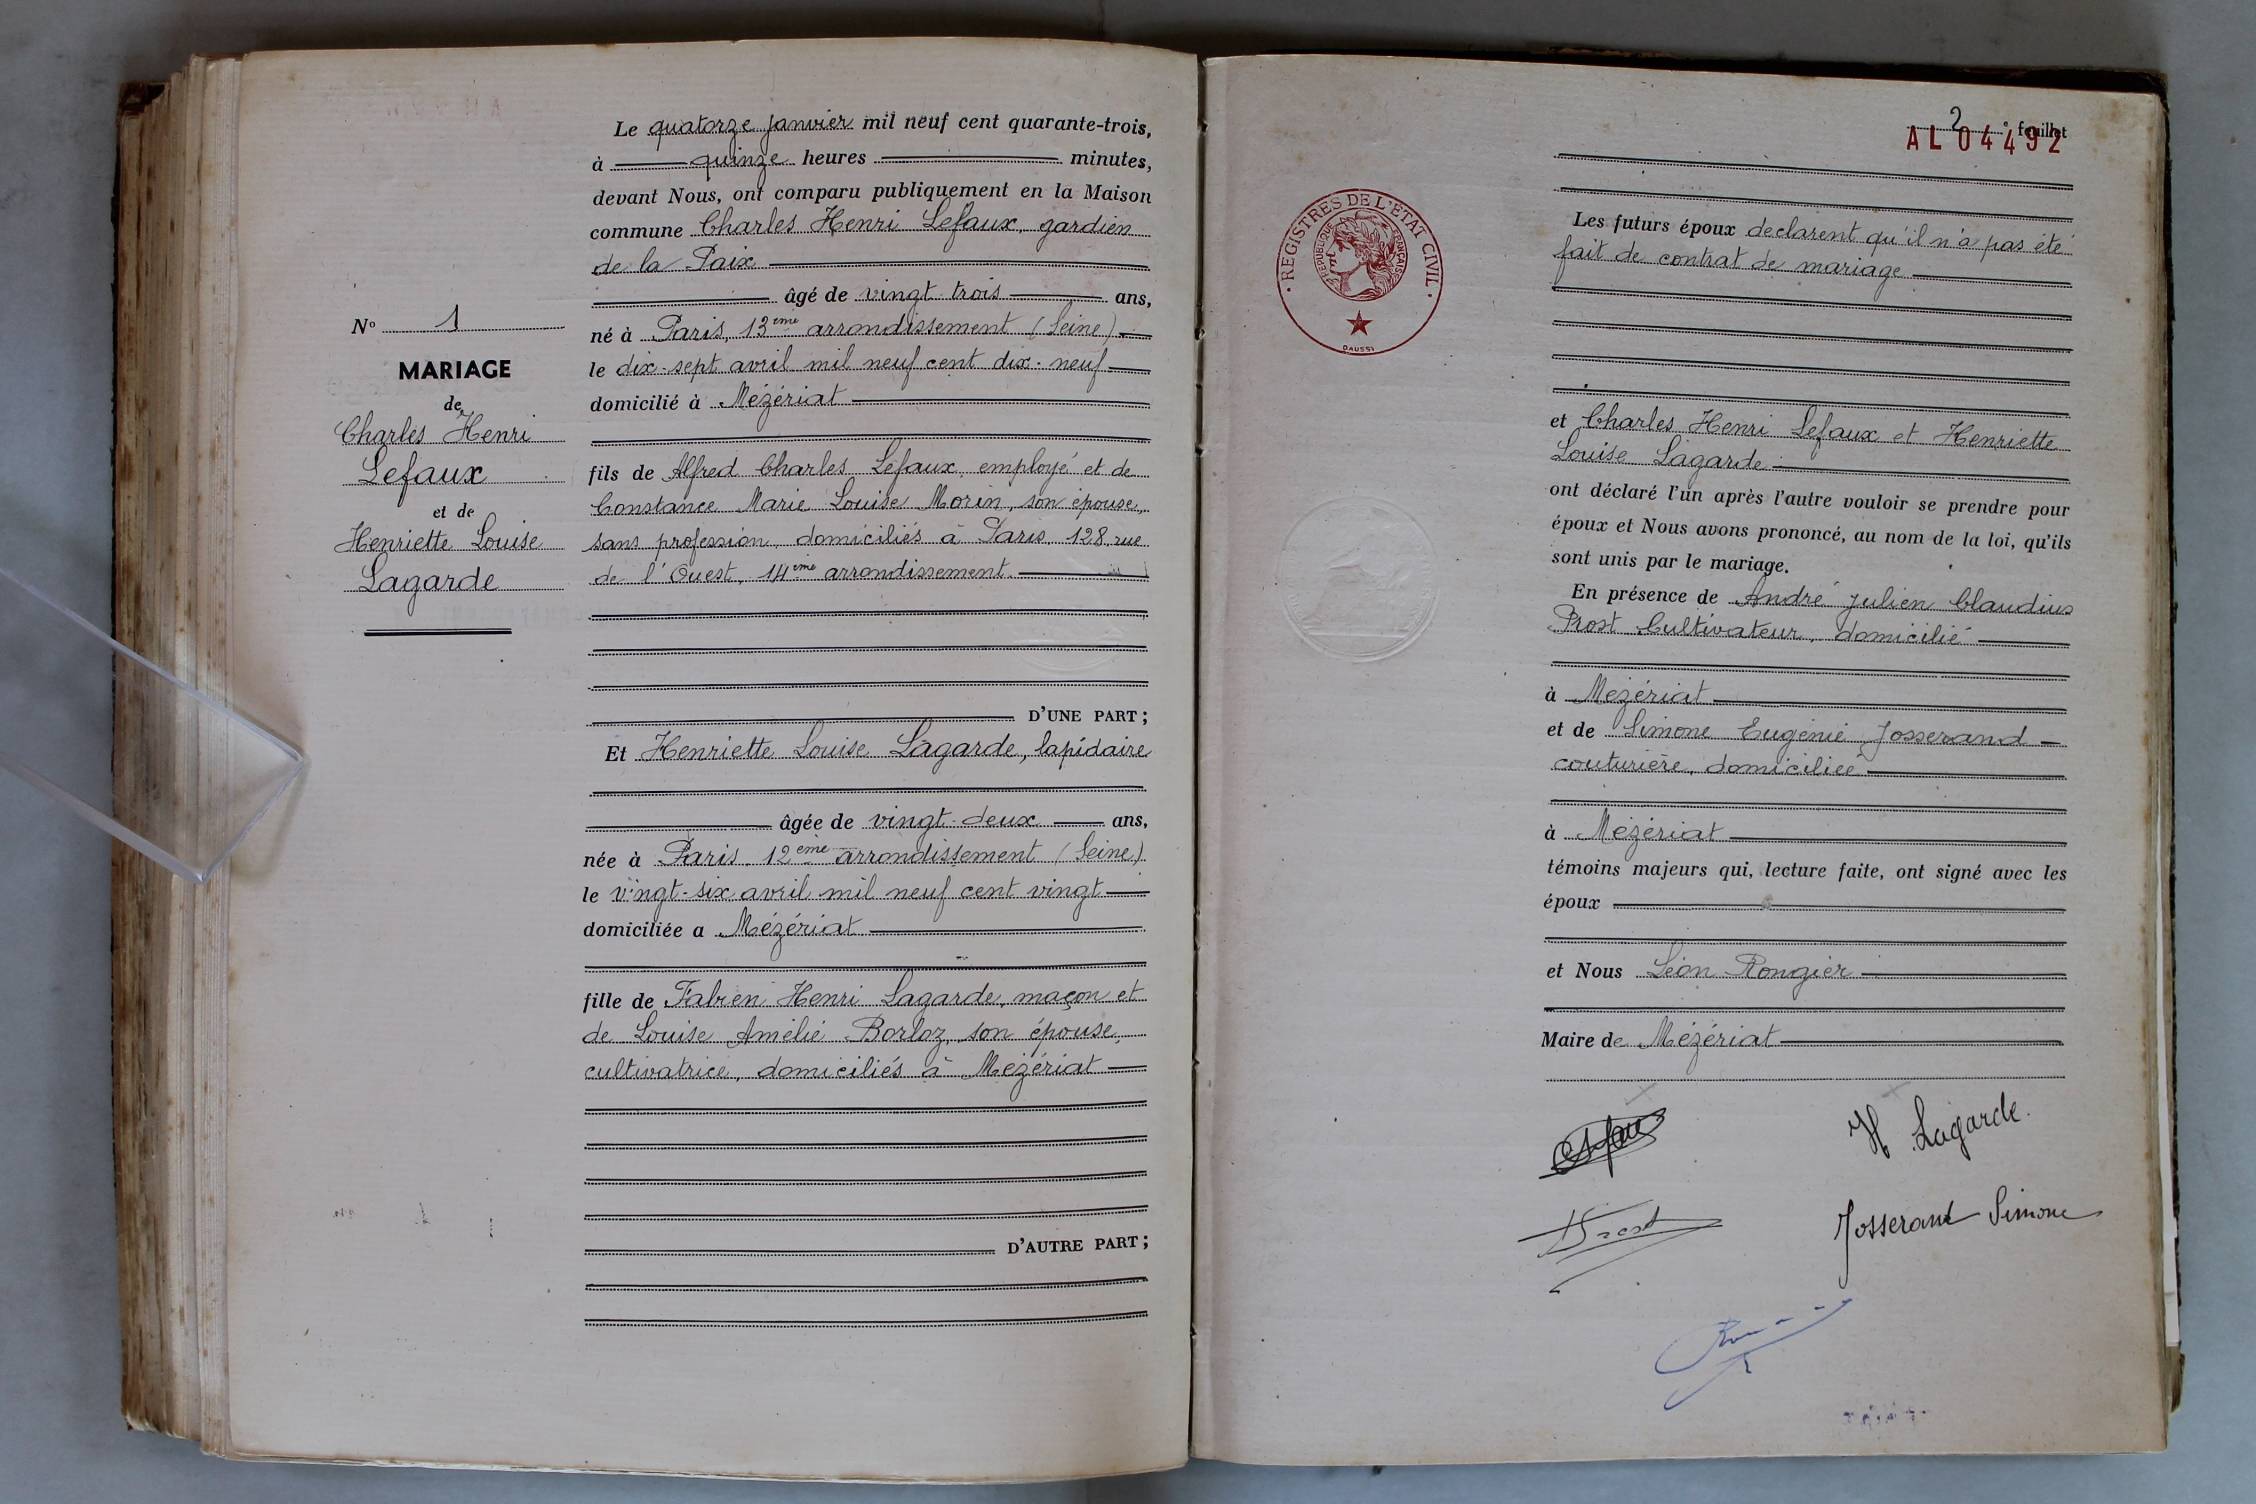 Le quatorze janvier mil neuf cent quarante-trois,
à quinze heures minutes,
devant Nous, ont comparu publiquement en la Maison
commune Charles Henri Lefaux, gardien
de la Paix
âgé de vingt trois ans,
né à Paris, 13ème arrondissement (Seine)
le dix-sept avril mil neuf cent dix-neuf
domicilié à Mézériat
fils de Alfred Charles Lefaux employé et de
Constance Marie Louise Morin, son épouse,
sans profession, domiciliés à Paris, 128, rue
de l'Ouest, 14ème arrondissement.
D'UNE PART ;
Et Henriette Louise Lagarde, lapidaire
âgée de vingt-deux ans,
née à Paris 12ème arrondissement (Seine)
le vingt-six avril mil neuf cent vingt
domiciliée a Mézériat
fille de Fabien Henri Lagarde, maçon et
de Louise Amélie Borloz, son épouse,
cultivatrice, domiciliés à Mézériat
D'AUTRE PART ;
No 1
MARIAGE
de
Charles Henri
Lefaux
et de
Henriette Louise
Lagarde
2e feuillet
AL04492
REGISTRES DE L'ÉTAT CIVIL
RÉPUBLIQUE FRANÇAISE
DAUSSI
Les futurs époux declarent qu'il n'a pas été
fait de contrat de mariage
et Charles Henri Lefaux et Henriette
Louise Lagarde
ont déclaré l'un après l'autre vouloir se prendre pour
époux et Nous avons prononcé, au nom de la loi, qu'ils
sont unis par le mariage.
En présence de André Julien Claudius
Prost Cultivateur, domicilié
à Mézériat
et de Simone Eugénie Josserand
couturière, domiciliée
à Mézériat
témoins majeurs qui, lecture faite, ont signé avec les
époux
et Nous Léon Rongier
Maire de Mézériat
H Lagarde.
Prost
Josserand Simone